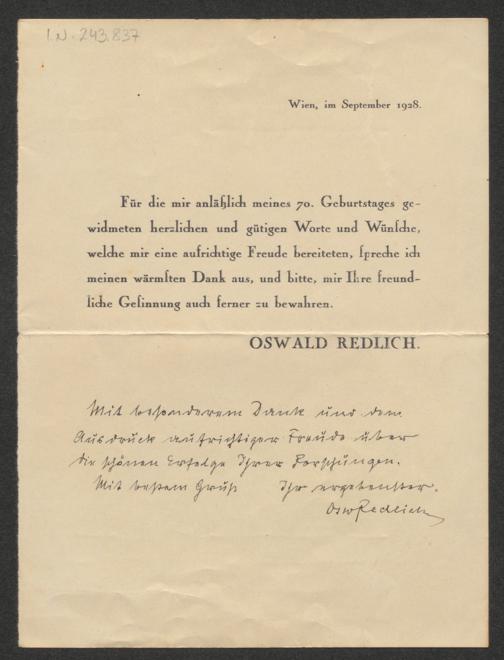 I.N. 243.837
Wien, im September 1928.
Für die mir anläßlich meines 70. Geburtstages ge-
widmeten herzlichen und gütigen Worte und Wünsche,
welche mir eine aufrichtige Freude bereiteten, spreche ich
meinen wärmsten Dank aus, und bitte, mir Ihre freund-
liche Gesinnung auch ferner zu bewahren.
OSWALD REDLICH.
Mit besonderem Dank und dem
Ausdruck aufrichtiger Freude über
die schönen Erfolge Ihrer Forschungen.
Mit bestem Gruß Ihr ergebenster.
OswRedlich